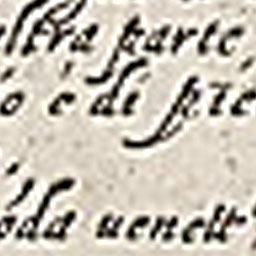 altra parte,
o è di pie
oda uenett